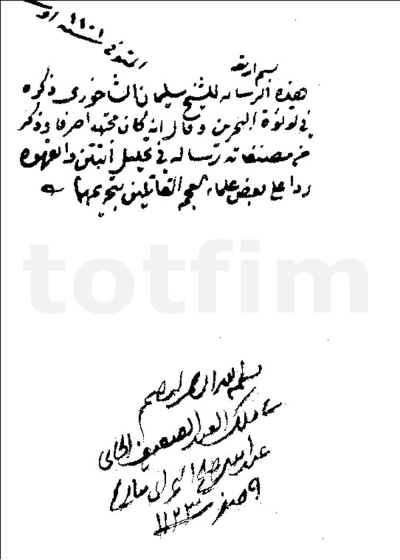 المتوفى ١١٠١
بسم الله
هذه الرسالة للشيخ سليمان الشاخوري ذكره
في لؤلؤة البحرين وقال انه كان مجتهدا صرفا وذكر
من مصنفاته رسالة في تحليل التتن والقهوة
ردا على بعض علماء العجم القائلين بتحريمهما
totfim
بسم الله الرحمن الرحيم
ملك العبد الضعيف الجاني
عبد الله صالح
٩ صفر سنة ١١٢٣